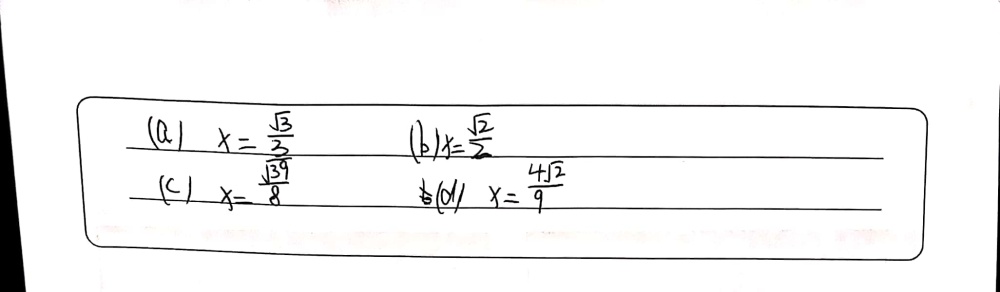 (a) x = √3/3 (b) x = √2/2
(c) x = √39/8 (d) x = 4√2/9